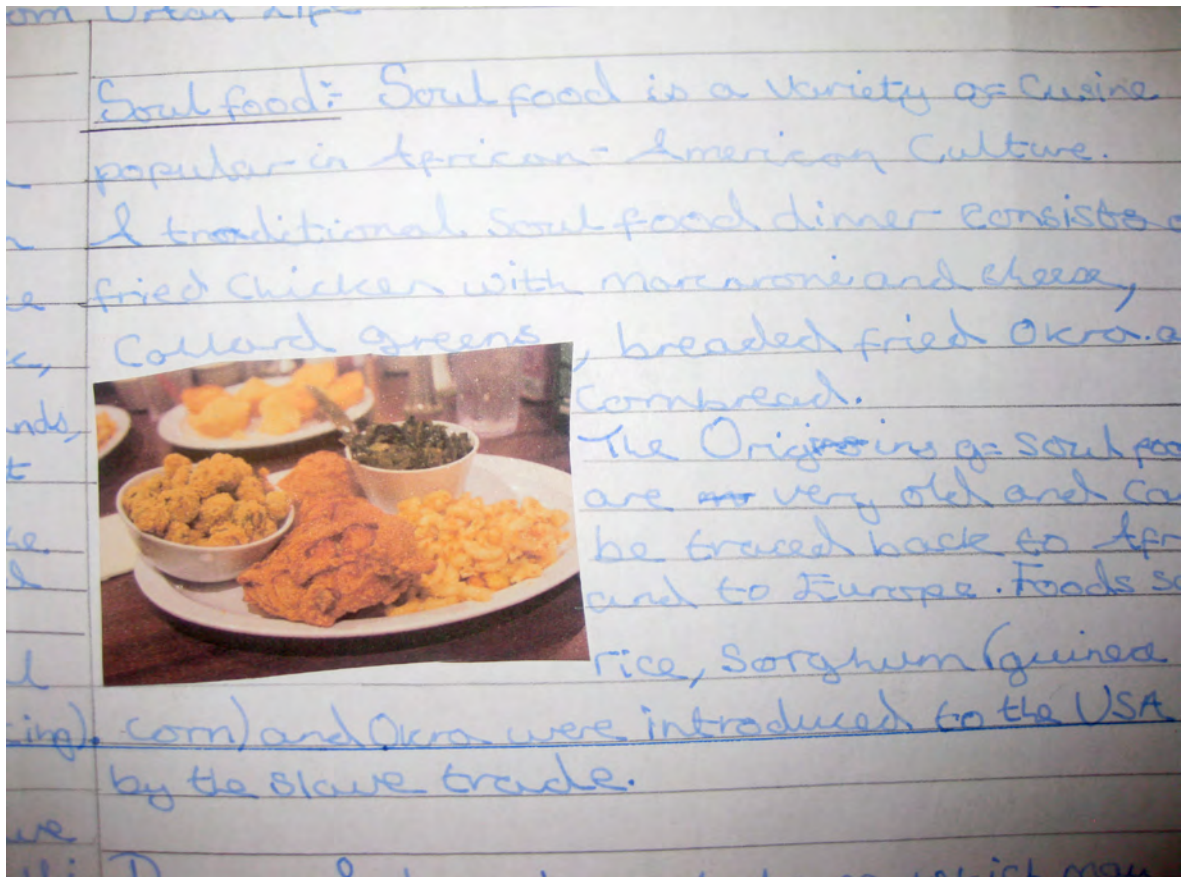 om Urban Life
Soul food:- Soul food is a variety of Cusine
popular in African-American Culture.
A traditional soul food dinner consists
fried chicken with marcarone and cheese,
Collard greens, breaded fried Okra.
Cornbread.
nds,
The Origins of soul foo
are very old and ca
be traced back to Afr
and to Europe. Foods
rice, Sorghum (guinea
cing). corn) and Okra were introduced to the USA
by the slave trade.
which may